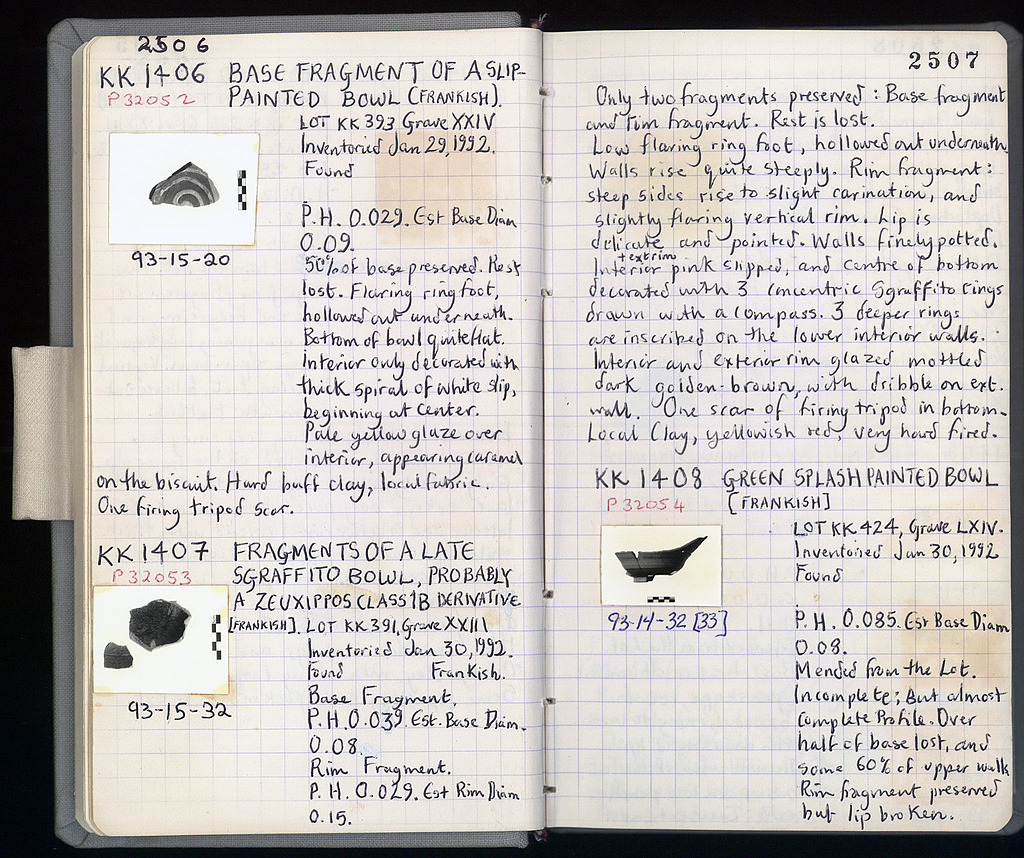 2506
KK 1406 BASE FRAGMENT OF A SLIP-
P 32052 PAINTED BOWL (FRANKISH).
LOT KK 393 Grave XXIV
Inventoried Jan 29, 1992.
Found
P.H. 0.029. Est Base Diam
0.09.
93-15-20
50% of base preserved. Rest
lost. Flaring ring foot,
hollowed out underneath.
Bottom of bowl quite flat.
Interior only decorated with
thick spiral of white slip,
beginning at center.
Pale yellow glaze over
interior, appearing caramel
on the biscuit. Hard buff clay, local fabric.
One firing tripod scar.
KK 1407 FRAGMENTS OF A LATE
P 32053 SGRAFFITO BOWL, PROBABLY
A ZEUXIPPOS CLASS 1B DERIVATIVE
[FRANKISH]. LOT KK 391, Grave XXIII
Inventoried Jan 30, 1992.
Found Frankish.
Base Fragment.
93-15-32
P.H. 0.039. Est. Base Diam.
0.08.
Rim Fragment.
P.H. 0.029. Est Rim Diam
0.15.
2507
Only two fragments preserved: Base fragment
and rim fragment. Rest is lost.
Low flaring ring foot, hollowed out underneath.
Walls rise quite steeply. Rim fragment:
steep sides rise to slight carination, and
slightly flaring vertical rim. Lip is
delicate and pointed. Walls finely potted.
+ ext rim
Interior pink slipped, and centre of bottom
decorated with 3 concentric Sgraffito rings
drawn with a compass. 3 deeper rings
are inscribed on the lower interior walls.
Interior and exterior rim glazed mottled
dark golden-brown, with dribble on ext.
wall. One scar of firing tripod in bottom.
Local Clay, yellowish red, very hard fired.
KK 1408 GREEN SPLASH PAINTED BOWL
P 32054 [FRANKISH]
LOT KK 424, Grave LXIV.
Inventoried Jan 30, 1992
Found
93-14-32 [33]
P.H. 0.085. Est Base Diam
0.08.
Mended from the Lot.
Incomplete; But almost
complete Profile. Over
half of base lost, and
some 60% of upper walls
Rim fragment preserved
but lip broken.